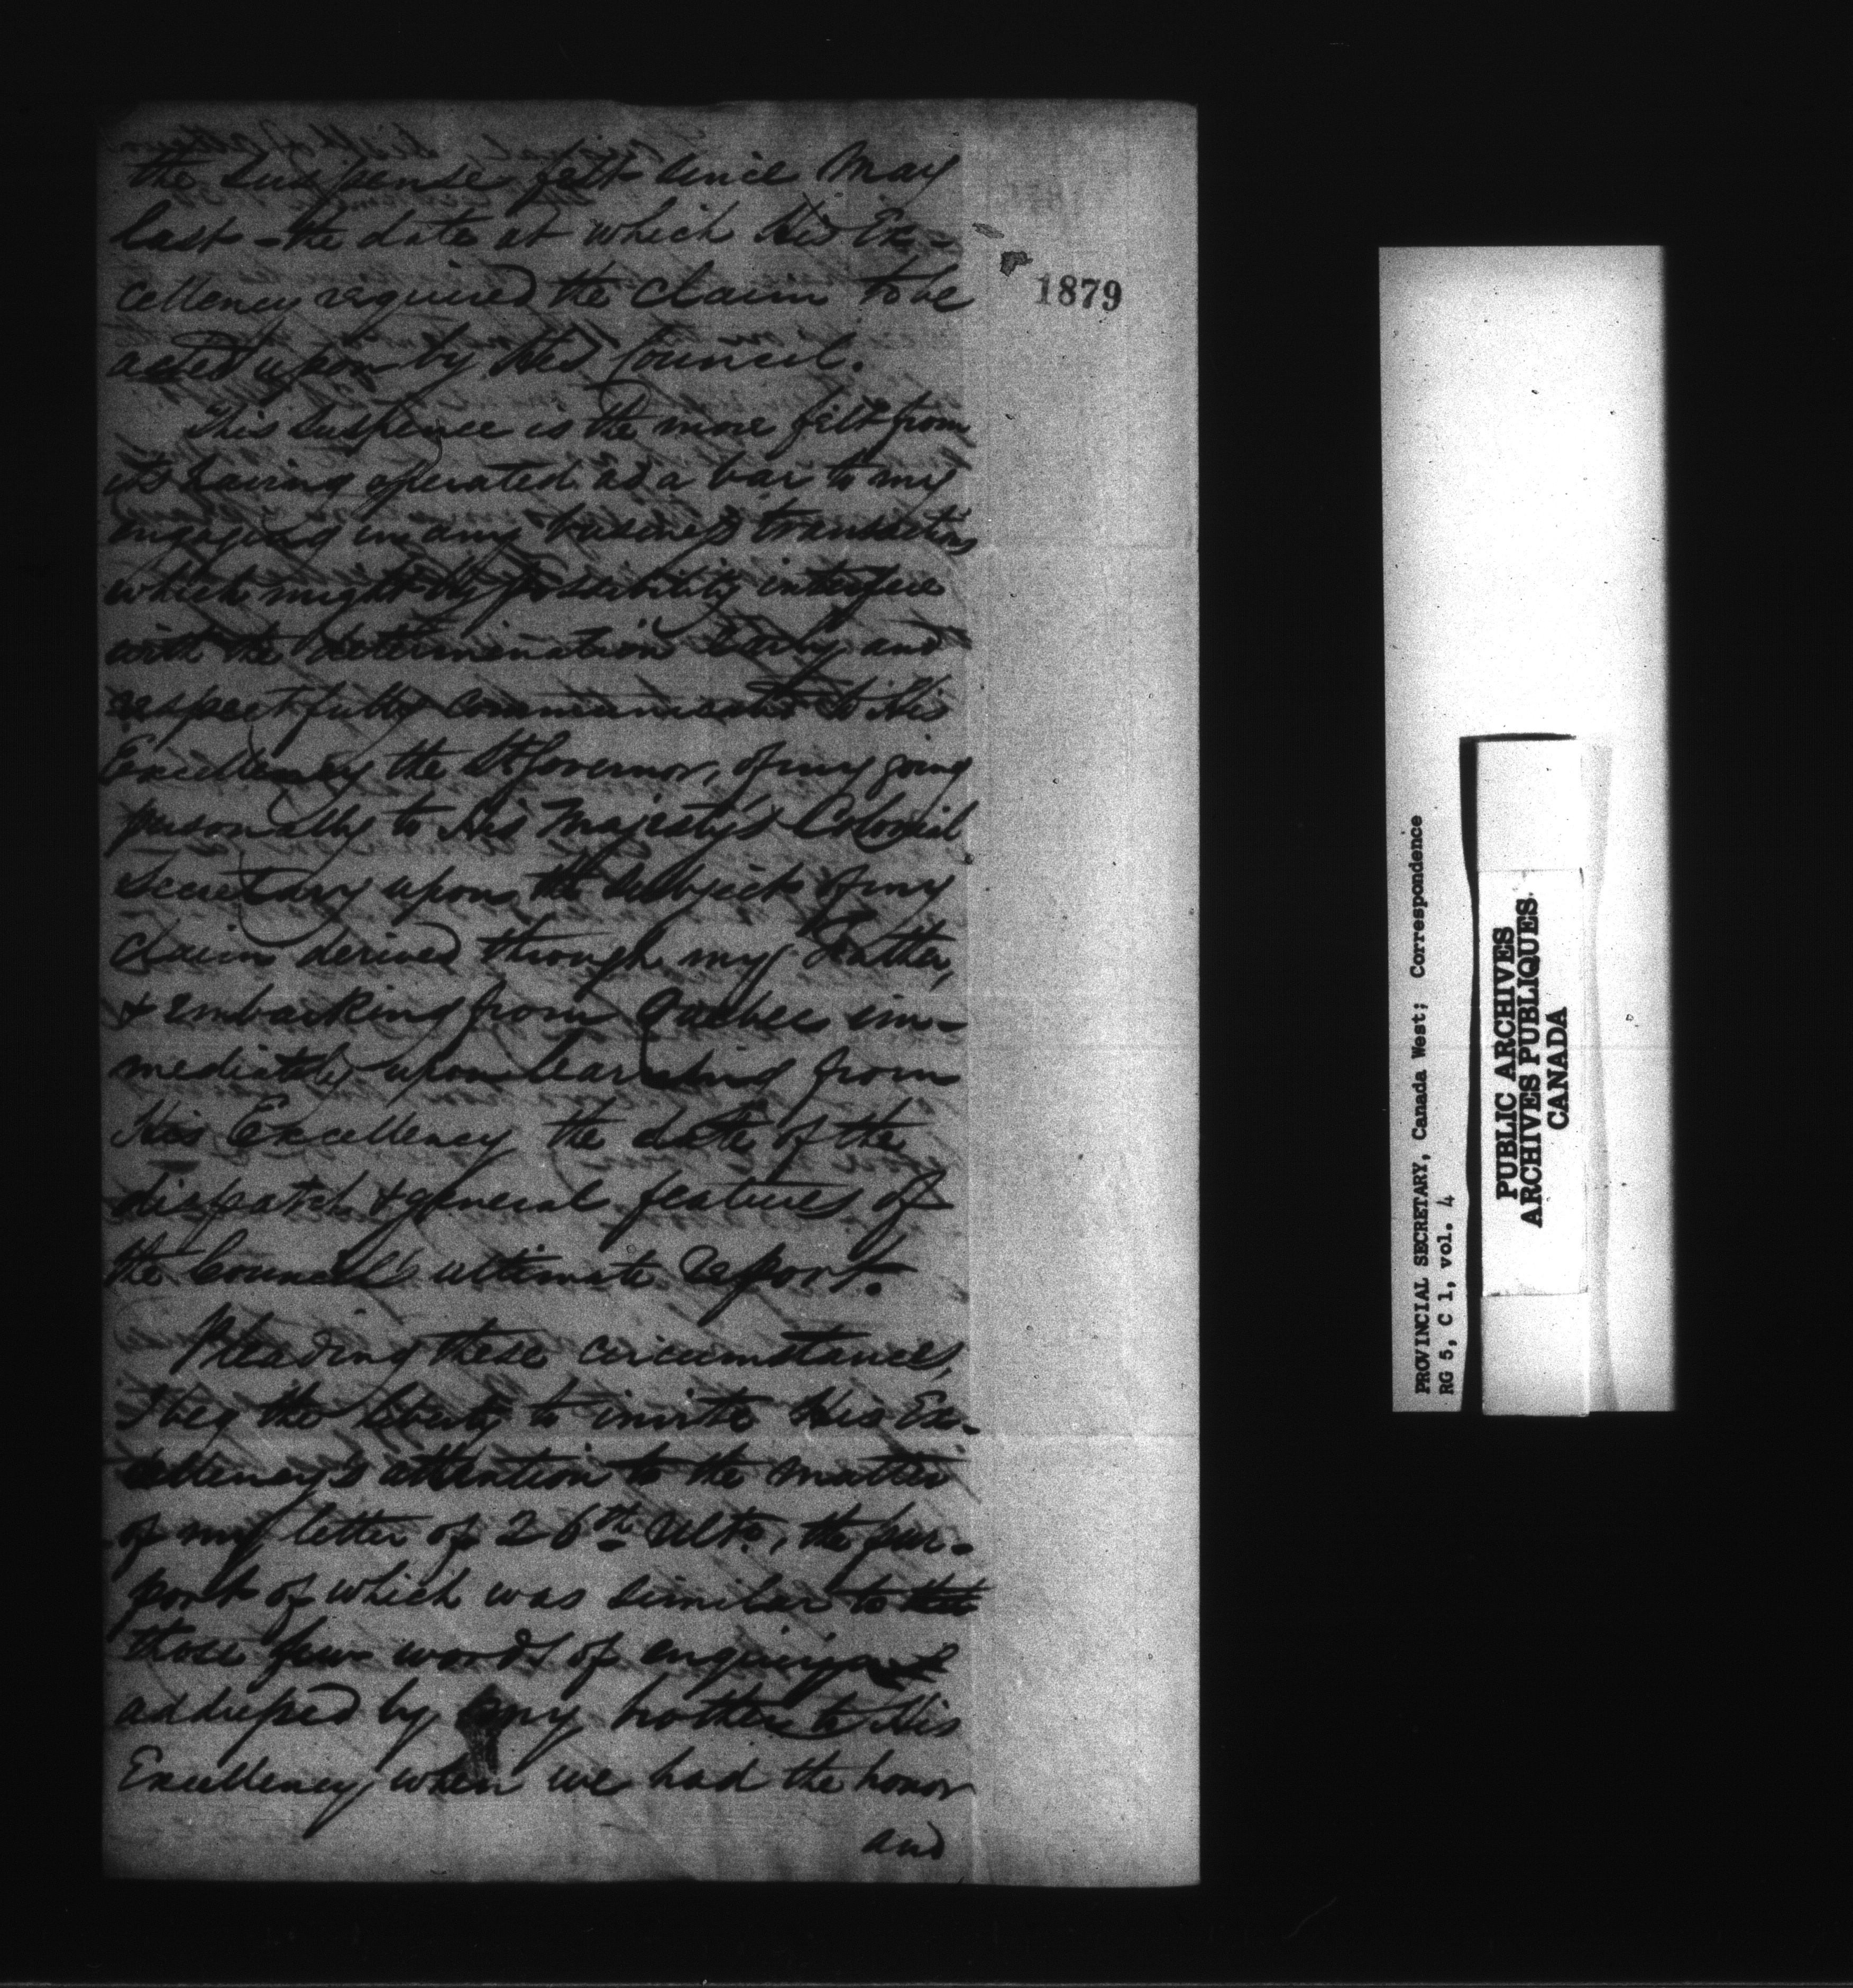 the suspense felt since May
last - the date at which His Ex-
cellency required the claim to be
acted upon by the Council.
This suspense is the more felt from
its having operated as a bar to my
engaging in any business transactions
which might by possibility interfere
with the determination early and
respectfully communicated to His
Excellency the Lt Governor, of my going
personally to His Majesty's Colonial
Secretary upon the subject of my
claim derived through my Father,
& embarking from Quebec im-
mediately upon learning from
His Excellency the date of the
dispatch & general features of
the Council's ultimate report.
Pleading these circumstances,
I beg the liberty to invite His Ex-
cellency's attention to the matter
of my letter of 26th Ulto, the pur-
port of which was similar to
those few words of enquiry
addressed by my brother to His
Excellency when we had the honor
and
1879
PROVINCIAL SECRETARY, Canada West; Correspondence
RG 5, C 1, vol. 4
PUBLIC ARCHIVES
ARCHIVES PUBLIQUES
CANADA